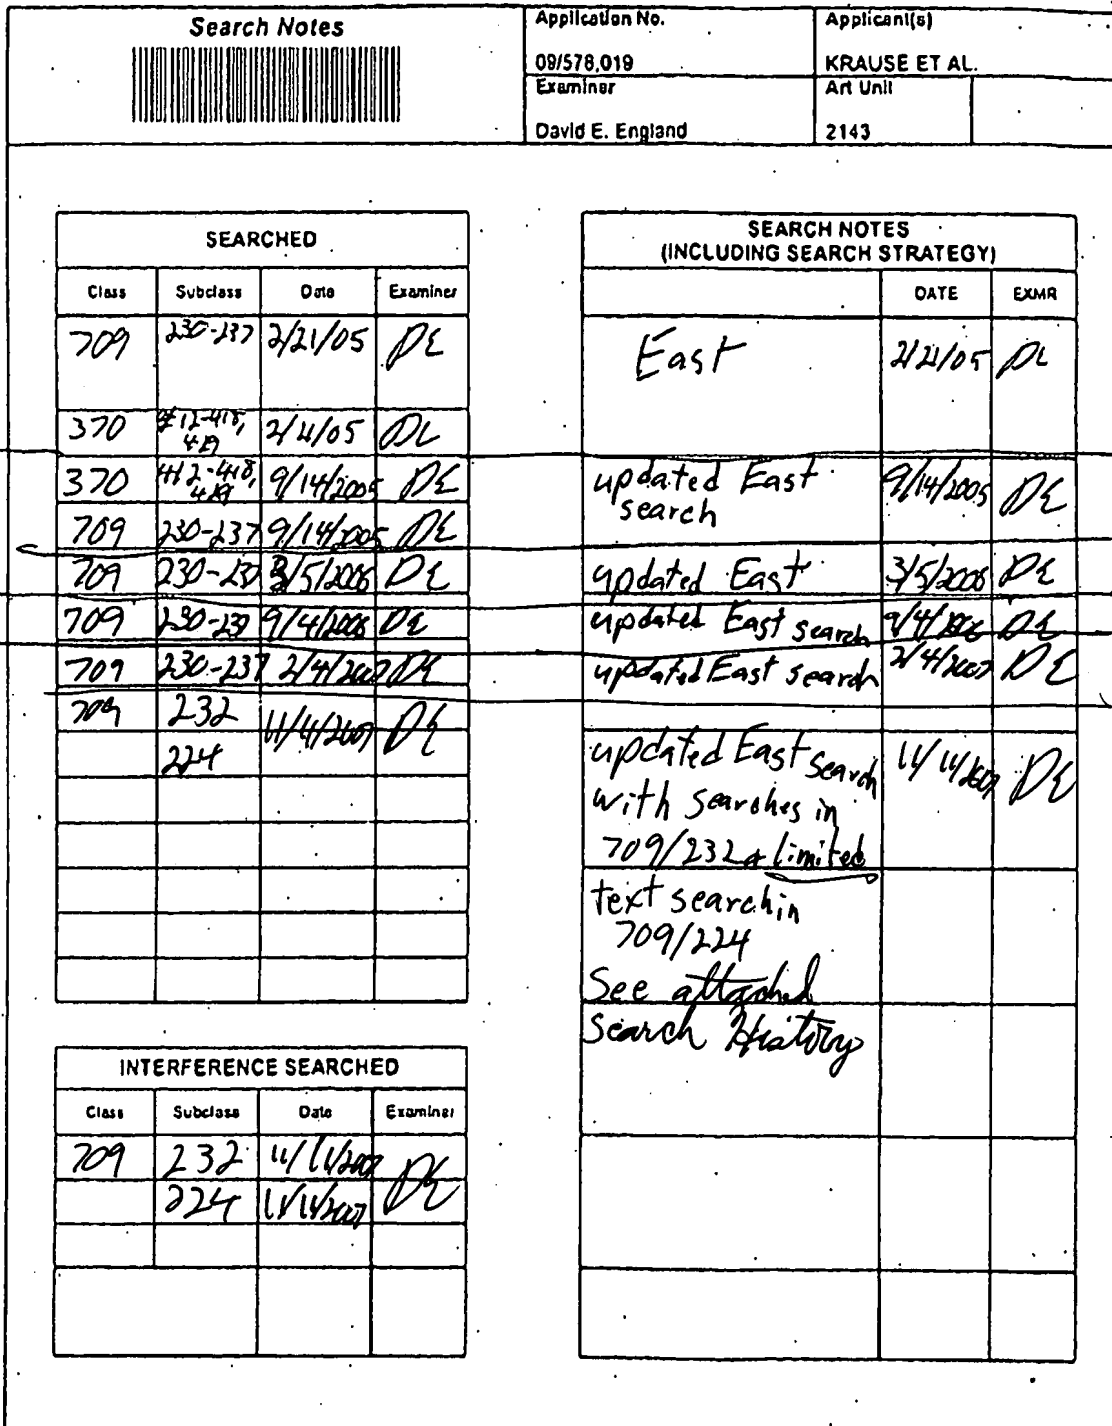 Search Notes
Application No.
Applicant(s)
09/578,019
KRAUSE ET AL.
Examiner
Art Unit
David E. England
2143
SEARCHED
Class Subclass Date Examiner
709 230-237 2/21/05 DE
370 412-418, 2/21/05 DE
419
370 412-418, 9/14/2005 DE
419
709 230-237 9/14/2005 DE
709 230-237 3/5/2006 DE
709 230-237 9/4/2006 DE
709 230-237 2/4/2007 DE
709 232 DE
224
INTERFERENCE SEARCHED
Class Subclass Date Examiner
709 232 11/11/2007 DE
224 11/11/2007
SEARCH NOTES
(INCLUDING SEARCH STRATEGY)
DATE EXMR
East 2/21/05 DE
updated East 9/14/2005 DE
search
updated East 3/5/2006 DE
updated East search 9/4/2006 DE
updated East search 2/4/2007 DE
updated East search 11/11/2007 DE
with searches in
709/232 & limited
text search in
709/224
See attached
Search History